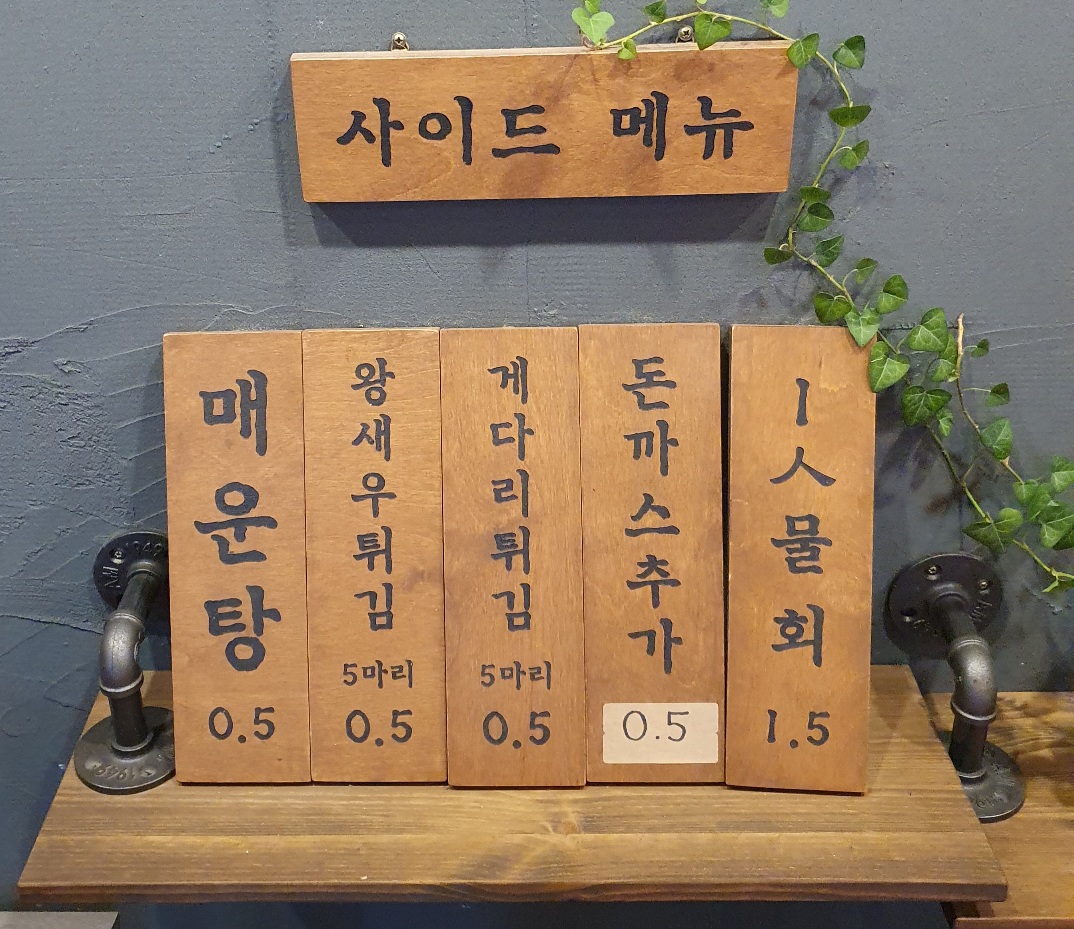 사이드 메뉴
매운탕
0.5
왕새우튀김
5마리
0.5
게다리튀김
5마리
0.5
돈까스추가
0.5
1人물회
1.5